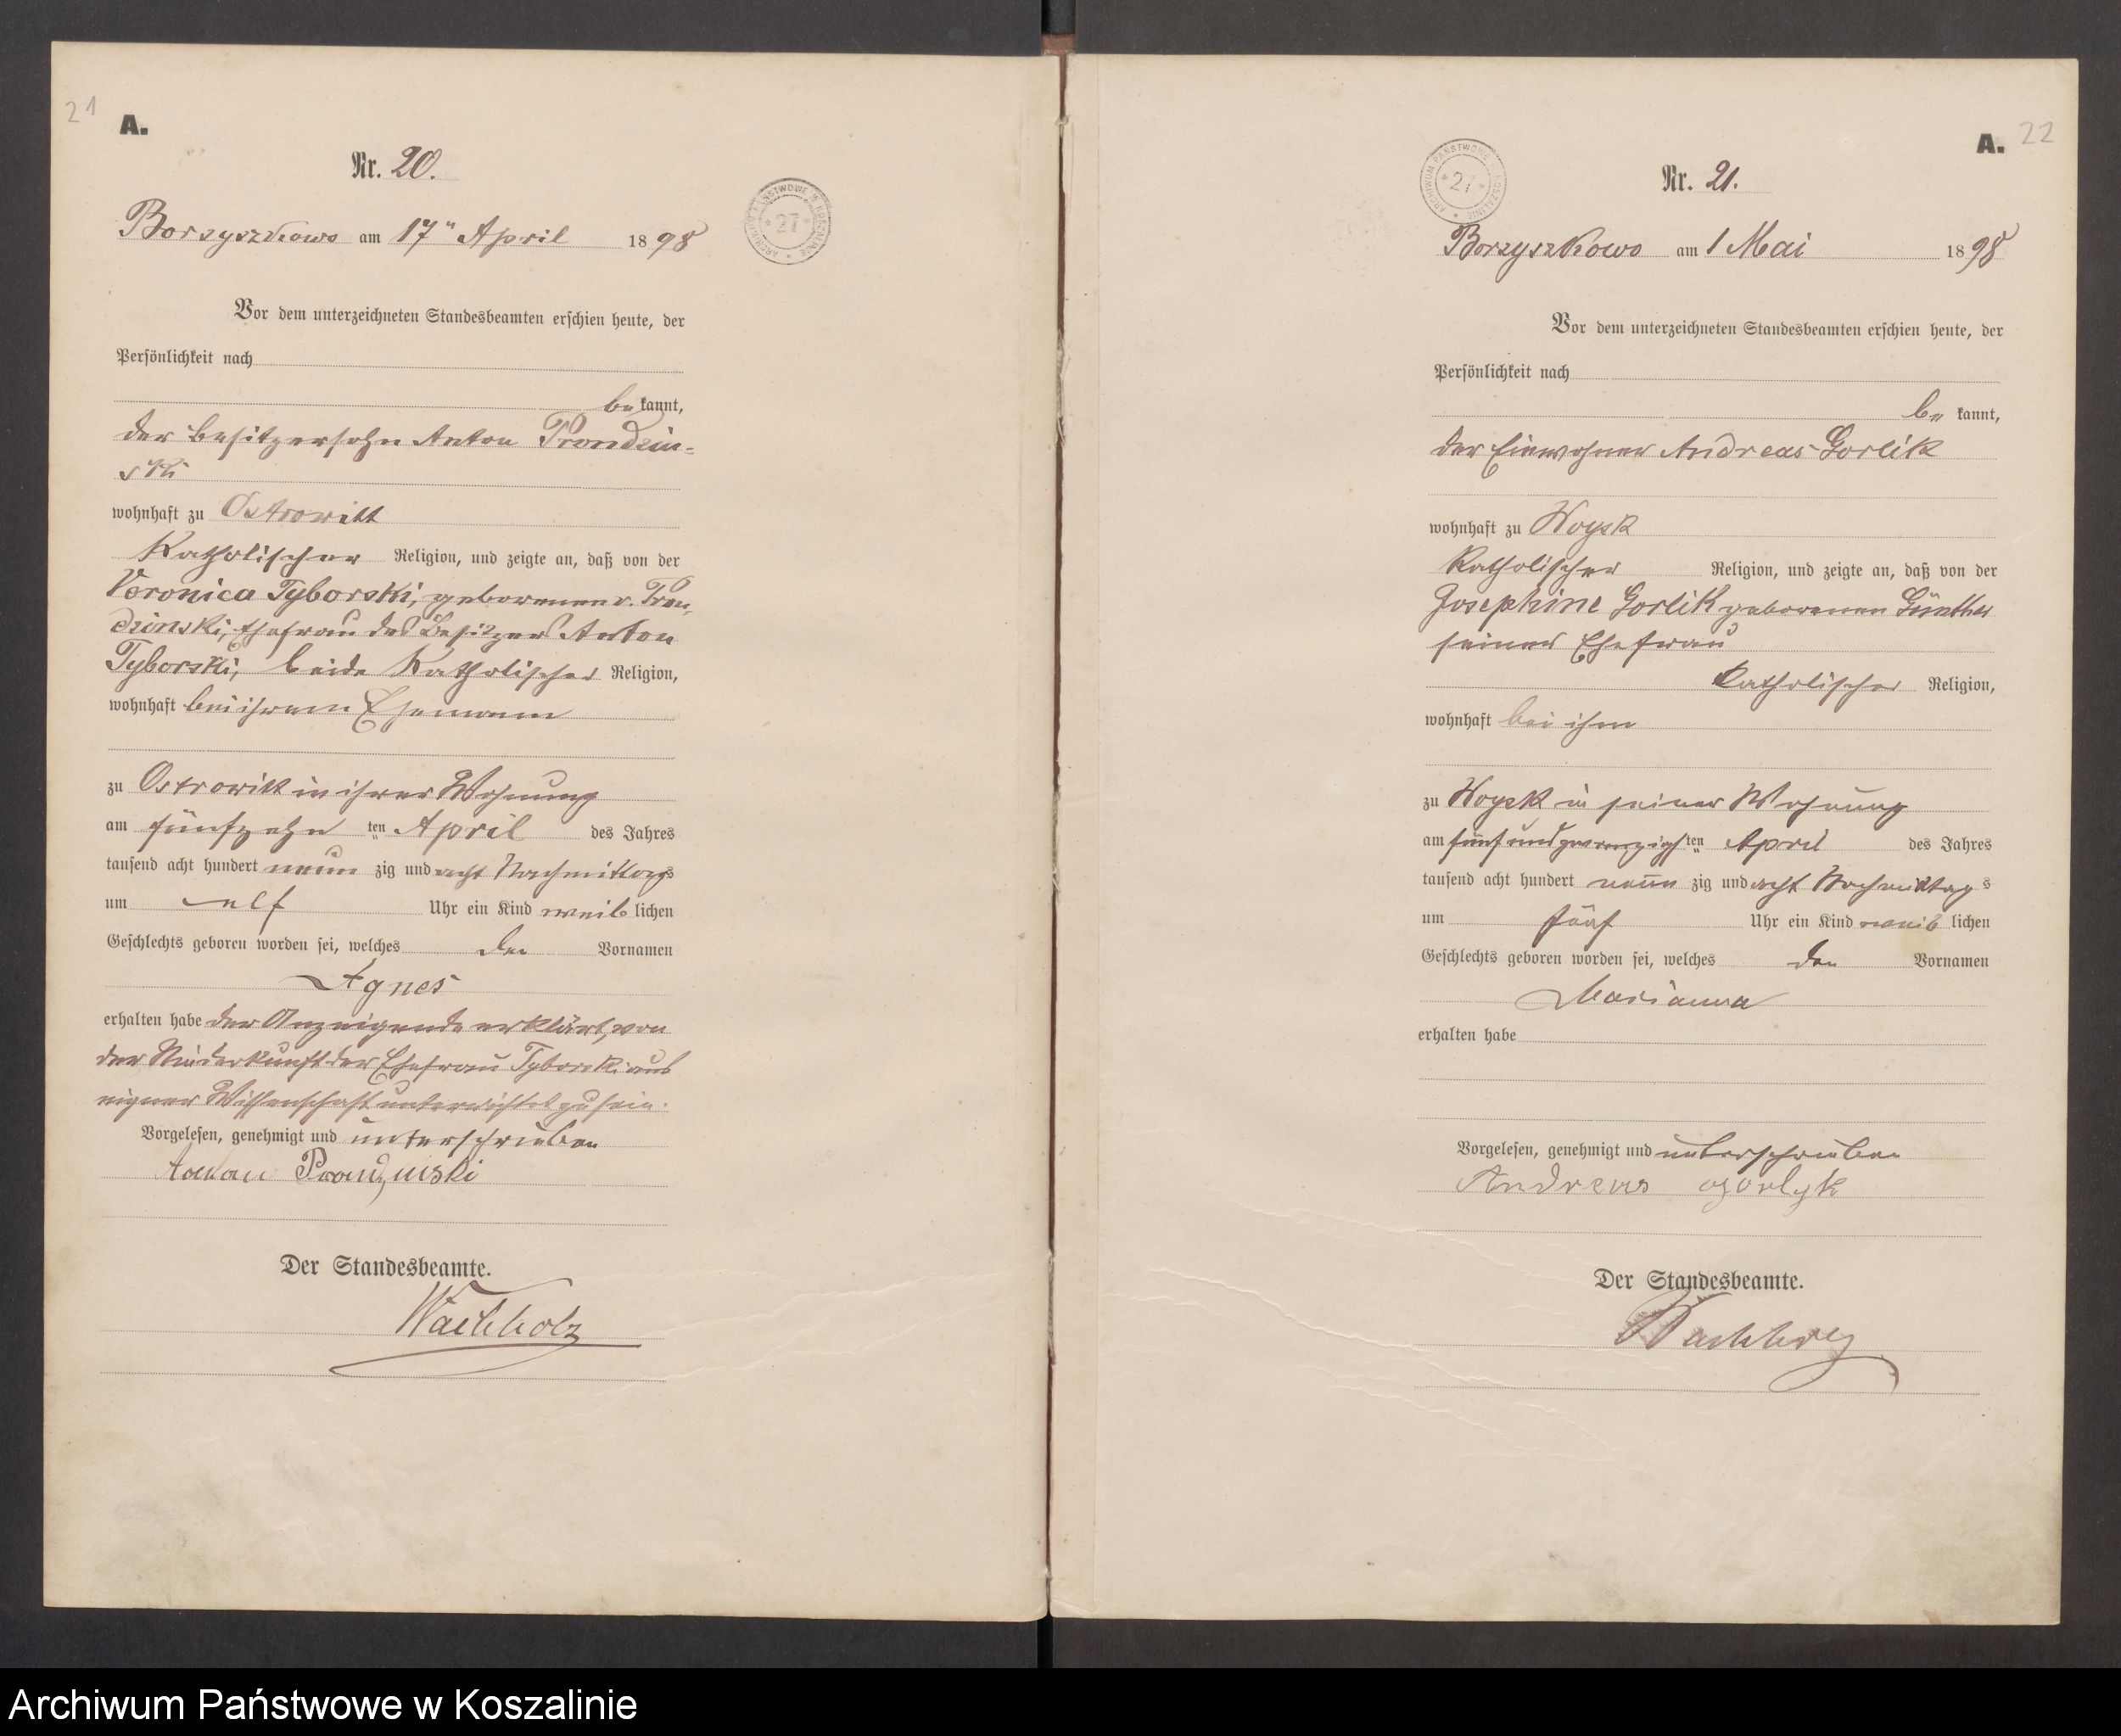 21
A.
Nr. 20.
Borzyszkowo am 17ⁿ April 1898
Vor dem unterzeichneten Standesbeamten erschien heute, der
Persönlichkeit nach
be kannt,
der Besitzersohn Anton Prondzin=
ski
wohnhaft zu Ostrowitt
Katholischer Religion, und zeigte an, daß von der
Veronica Tyborski, geborenen v. Pron,
dzinski, Ehefrau des Besitzers Anton
Tyborski, beide Katholischer Religion,
wohnhaft bei ihrem Ehemann
zu Ostrowitt in ihrer Wohnung
am fünfzehn ten April des Jahres
tausend acht hundert neun zig und acht Nachmittags
um elf Uhr ein Kind weib lichen
Geschlechts geboren worden sei, welches den Vornamen
Agnes
erhalten habe der Anzeigende erklärt, von
der Niederkunft der Ehefrau Tyborski aus
eigner Wissenschaft unterrichtet zu sein.
Vorgelesen, genehmigt und unterschrieben
Prondzinski
Der Standesbeamte.
Wachholz
ARCHIWUM PAŃSTWOWE W KOSZALINIE
* 27 *
22
A.
ARCHIWUM PAŃSTWOWE W KOSZALINIE
* 27 *
Nr. 21.
Borzyszkowo am 1 Mai 1898
Vor dem unterzeichneten Standesbeamten erschien heute, der
Persönlichkeit nach
be kannt,
der Einwohner Andreas Gorlik
wohnhaft zu Woysk
Katholischer Religion, und zeigte an, daß von der
Josephine Gorlik geborenen Günther
seiner Ehefrau
Katholischer Religion,
wohnhaft bei ihm
zu Woysk in seiner Wohnung
am fünfundzwanzigsten April des Jahres
tausend acht hundert neun zig und acht Nachmittag s
um fünf Uhr ein Kind weib lichen
Geschlechts geboren worden sei, welches den Vornamen
Marianna
erhalten habe
Vorgelesen, genehmigt und unterschrieben
Andreas Gorlyk
Der Standesbeamte.
Wachholz
Archiwum Państwowe w Koszalinie